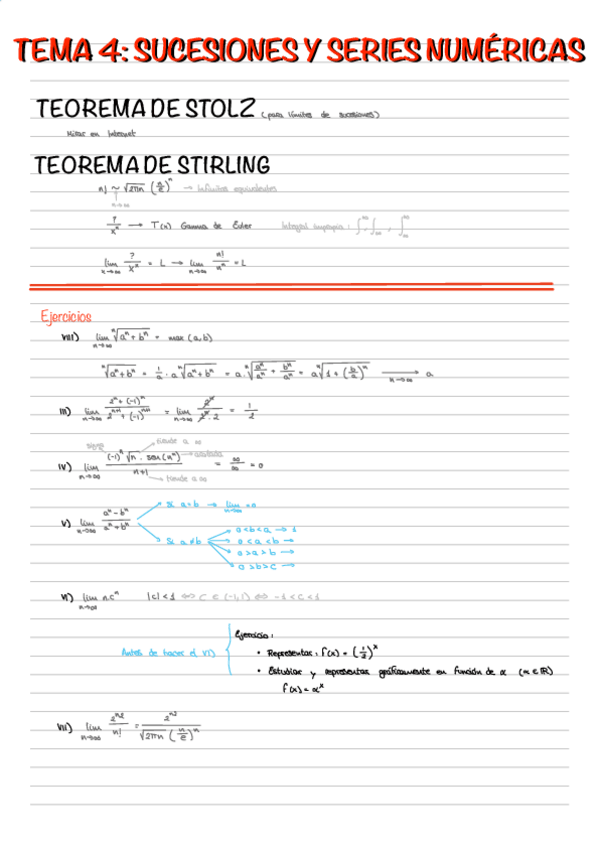 TEMA 4: SUCESIONES Y SERIES NUMÉRICAS
TEOREMA DE STOLZ (para límites de sucesiones)
Mirar en Internet
TEOREMA DE STIRLING
n! ~ √2πn (n/e)^n → Infinitos equivalentes
n→∞
?/x^n → T(n) Gamma de Euler Integral impropia: ∫
lim x→∞ ?/x^n = L → lim n→∞ n!/n^n = L
Ejercicios
VIII) lim n→∞ ⁿ√a^n + b^n = max (a,b)
ⁿ√a^n + b^n = 1/a · a ⁿ√a^n + b^n = a · ⁿ√a^n/a^n + b^n/a^n = a ⁿ√1 + (b/a)^n → n→∞ a
III) lim n→∞ 2^n + (-1)^n / 2^n+1 + (-1)^n+1 = lim n→∞ 2^n / 2^n · 2 = 1/2
signo tiende a ∞
IV) lim n→∞ (-1)^n √n · sen(n^n) / n+1 → acotada = ∞/∞ = 0
tiende a ∞
V) lim n→∞ a^n - b^n / a^n + b^n
Si a=b → lim n→∞ = 0
Si a≠b
0<b<a → 1
0<a<b →
0>a>b →
a>b>c →
VI) lim n→∞ n.c^n |c|<1 ⇔ C ∈ (-1,1) ⇔ -1<C<1
Ejercicio:
Antes de hacer el VI)
• Representar: f(x) = (1/2)^x
• Estudiar y representar gráficamente en función de α (α ∈ ℝ)
f(x) = α^x
VII) lim n→∞ 2^n2 / n! = 2^n2 / √2πn (n/e)^n